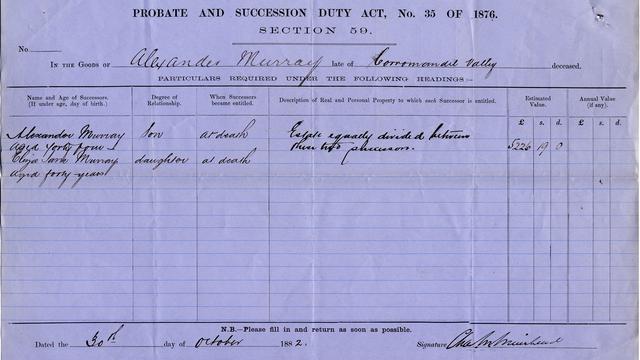 PROBATE AND SUCCESSION DUTY ACT, No. 35 OF 1876.
SECTION 59.
No.
IN THE GOODS OF Alexander Murray late of Corromandel Valley deceased.
PARTICULARS REQUIRED UNDER THE FOLLOWING HEADINGS:—
Name and Age of Successors. (If under age, day of birth.) Degree of Relationship. When Successors became entitled. Description of Real and Personal Property to which each Successor is entitled. Estimated Value. Annual Value (if any).
£ s. d. £ s. d.
Alexander Murray son at death Estate equally divided between
aged forty four these two successors. 5226 19 0
Eliza Jane Murray daughter at death
aged forty years
N.B.—Please fill in and return as soon as possible.
Dated the 30th day of October 1882. Signature Chas W Muirhead